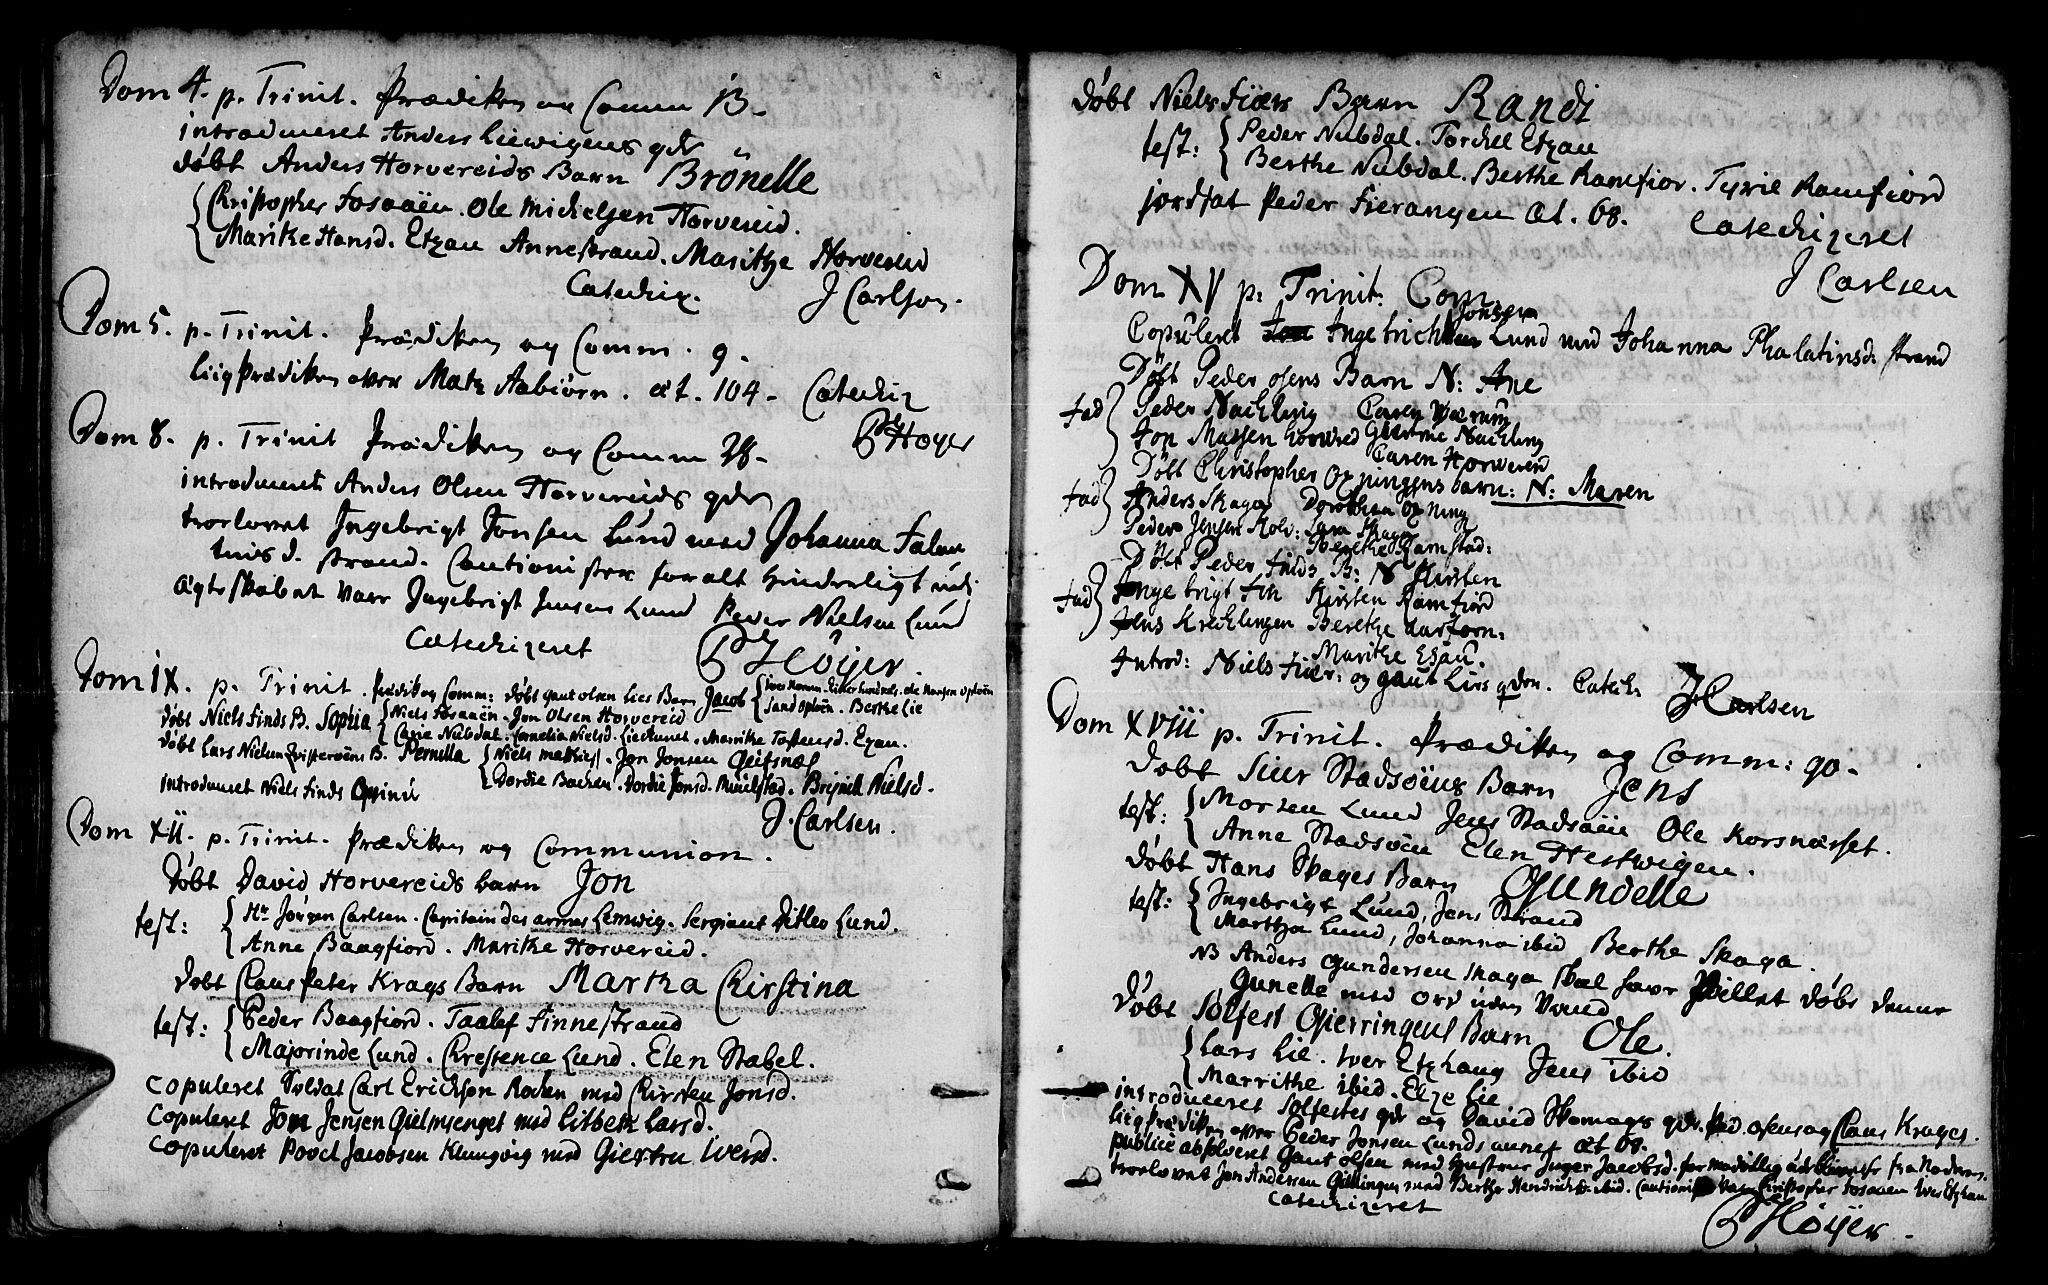 Dom 4. p. Trinit. Prædiken og Comm 13-
introduceret Anders Liewigens qde
døbt Anders Horvereids Barn Brönelle
Christopher Fosaaën. Ole Michelsen Horvereid.
Marike Hansd. Etzau Anne Strand. Maritze Horvereid
Catechiz. J Carlsen.
Dom 5. p. Trinit. Prædiken og Comm. 9.
liigprædiken over Matz Aabiørn. æt. 104- Catechiz
P Høyer
Dom 8. p. Trinit Prædiken og Comm 28-
introduceret Anders Olsen Horvereids qde
trorlovet Ingebrigt Jonsen Lund med Johanna Falen
tinsd. Strand. Cautionister for alt hinderligt udj
ægteskabet vare Ingebrigt Jensen Lund Peder Nielsen Lund
Catechizeret P Høÿer.
Dom IX. p. Trinit. Prædik og Comm: døbt Gaut Olsen Lies Barn Jacob
Sand Opløen. Berthe Lie
døbt Niels Finds B. Sophia Niels Fosaaën. Jon Olsen Horvereid
Carie Nubdal. Cornelia Nielsd. Marrike Tostensd. Ezau.
døbt Lars Nielsen B. Pernella Niels Mathiss. Jon Jonsen
Dordie Bachen. Dordie Jonsd. Nielsd.
introduceret Niels Finds Qvinde
J. Carlsen.
Dom XII. p. Trinit. Prædiken og Communion.
Døbt David Horvereids barn Jon
test: Hr Jørgen Carlsen. Capitain des armes Lemwig. Sergiant Ditlev Lund.
Anne Baagfiord. Marike Horvereid.
døbt Claus Peter Krags Barn Martha Chirstina
test: Peder Baagfiord. Taalef Finnestrand
Majorinde Lund. Chrestence Lund. Elen Stabel.
Copuleret Soldat Carl Erichsøn Rochen med Chirsten Jonsd.
Copuleret Jon Jensen Gielmsenget med Lisbeth Larsd.
Copuleret Povel Jacobsen Klungvig med Giertru Iversd.
døbt Niels Fiærs Barn Randi
test: Peder Nubdal. Torchel Etzau
Berthe Nubdal. Berthe Ramfior. Tyrie Ramfiord
jordsat Peder Fierangen æt. 68. Catechizeret
J Carlsen
Dom XV p. Trinit: Com
Jonsen
Copuleret Ingebricht Lund med Johanna Phalatinsd: Strand
Døbt Peder Osens Barn N: Ane
fad Peder Nachling Caren Værum
Jon Massen Giertrue Nachling
Caren Horwereid
Døbt Christopher Opningens barn: N: Maren
fad Anders Skaga Dorothea Opning
Peder Jensen Hov: Lava Skaga
Berethe Ramstad:
Døbt Peder Finds B: N Kirsten
fad Ingebrigt Fin Kirsten Ramfiord
Jens Krechlingen Berethe
Marithe Ezau.
Introd: Niels Fier: og Gaut Lies qden. Catech: J Carlsen
Dom XVIII p. Trinit. Prædiken og Comm: 90-
Døbt Siur Stadsöens Barn Jens
test: Morten Lund Jens Stadsöen Ole Korsnæsset.
Anne Stadsöen Elen Hestwigen.
Døbt Hans Skages Barn Gundelle
test: Ingebrigt Lund, Jens Strand
Martha Lund, Johanna ibid Berthe Skaga.
NB Anders Gundersen Skaga skal havr villet døbt denne
Gunelle med ord uden Vand
Døbt Solfest Gierringens Barn Ole.
Lars Lie. Iver Etzhaug Jens ibid
Marrithe ibid. Elze Lie
introduceret Solfestes qde og David Skomags qde. Ped. Osens og Claus Krages.
liigprædiken over Peder Jonsen Lunds æt 68.
publice absolveret Gaut Olsen med hustrue Inger Jacobsd. for modvillig udeblivelse fra Nadveren.
trorlovet Jon Andersen Giellingen med Berthe Hendrichsd ibid. Cautionist Vare Christopher Fosaaen Iver Etzhau
Catechizeret
P Høÿer.